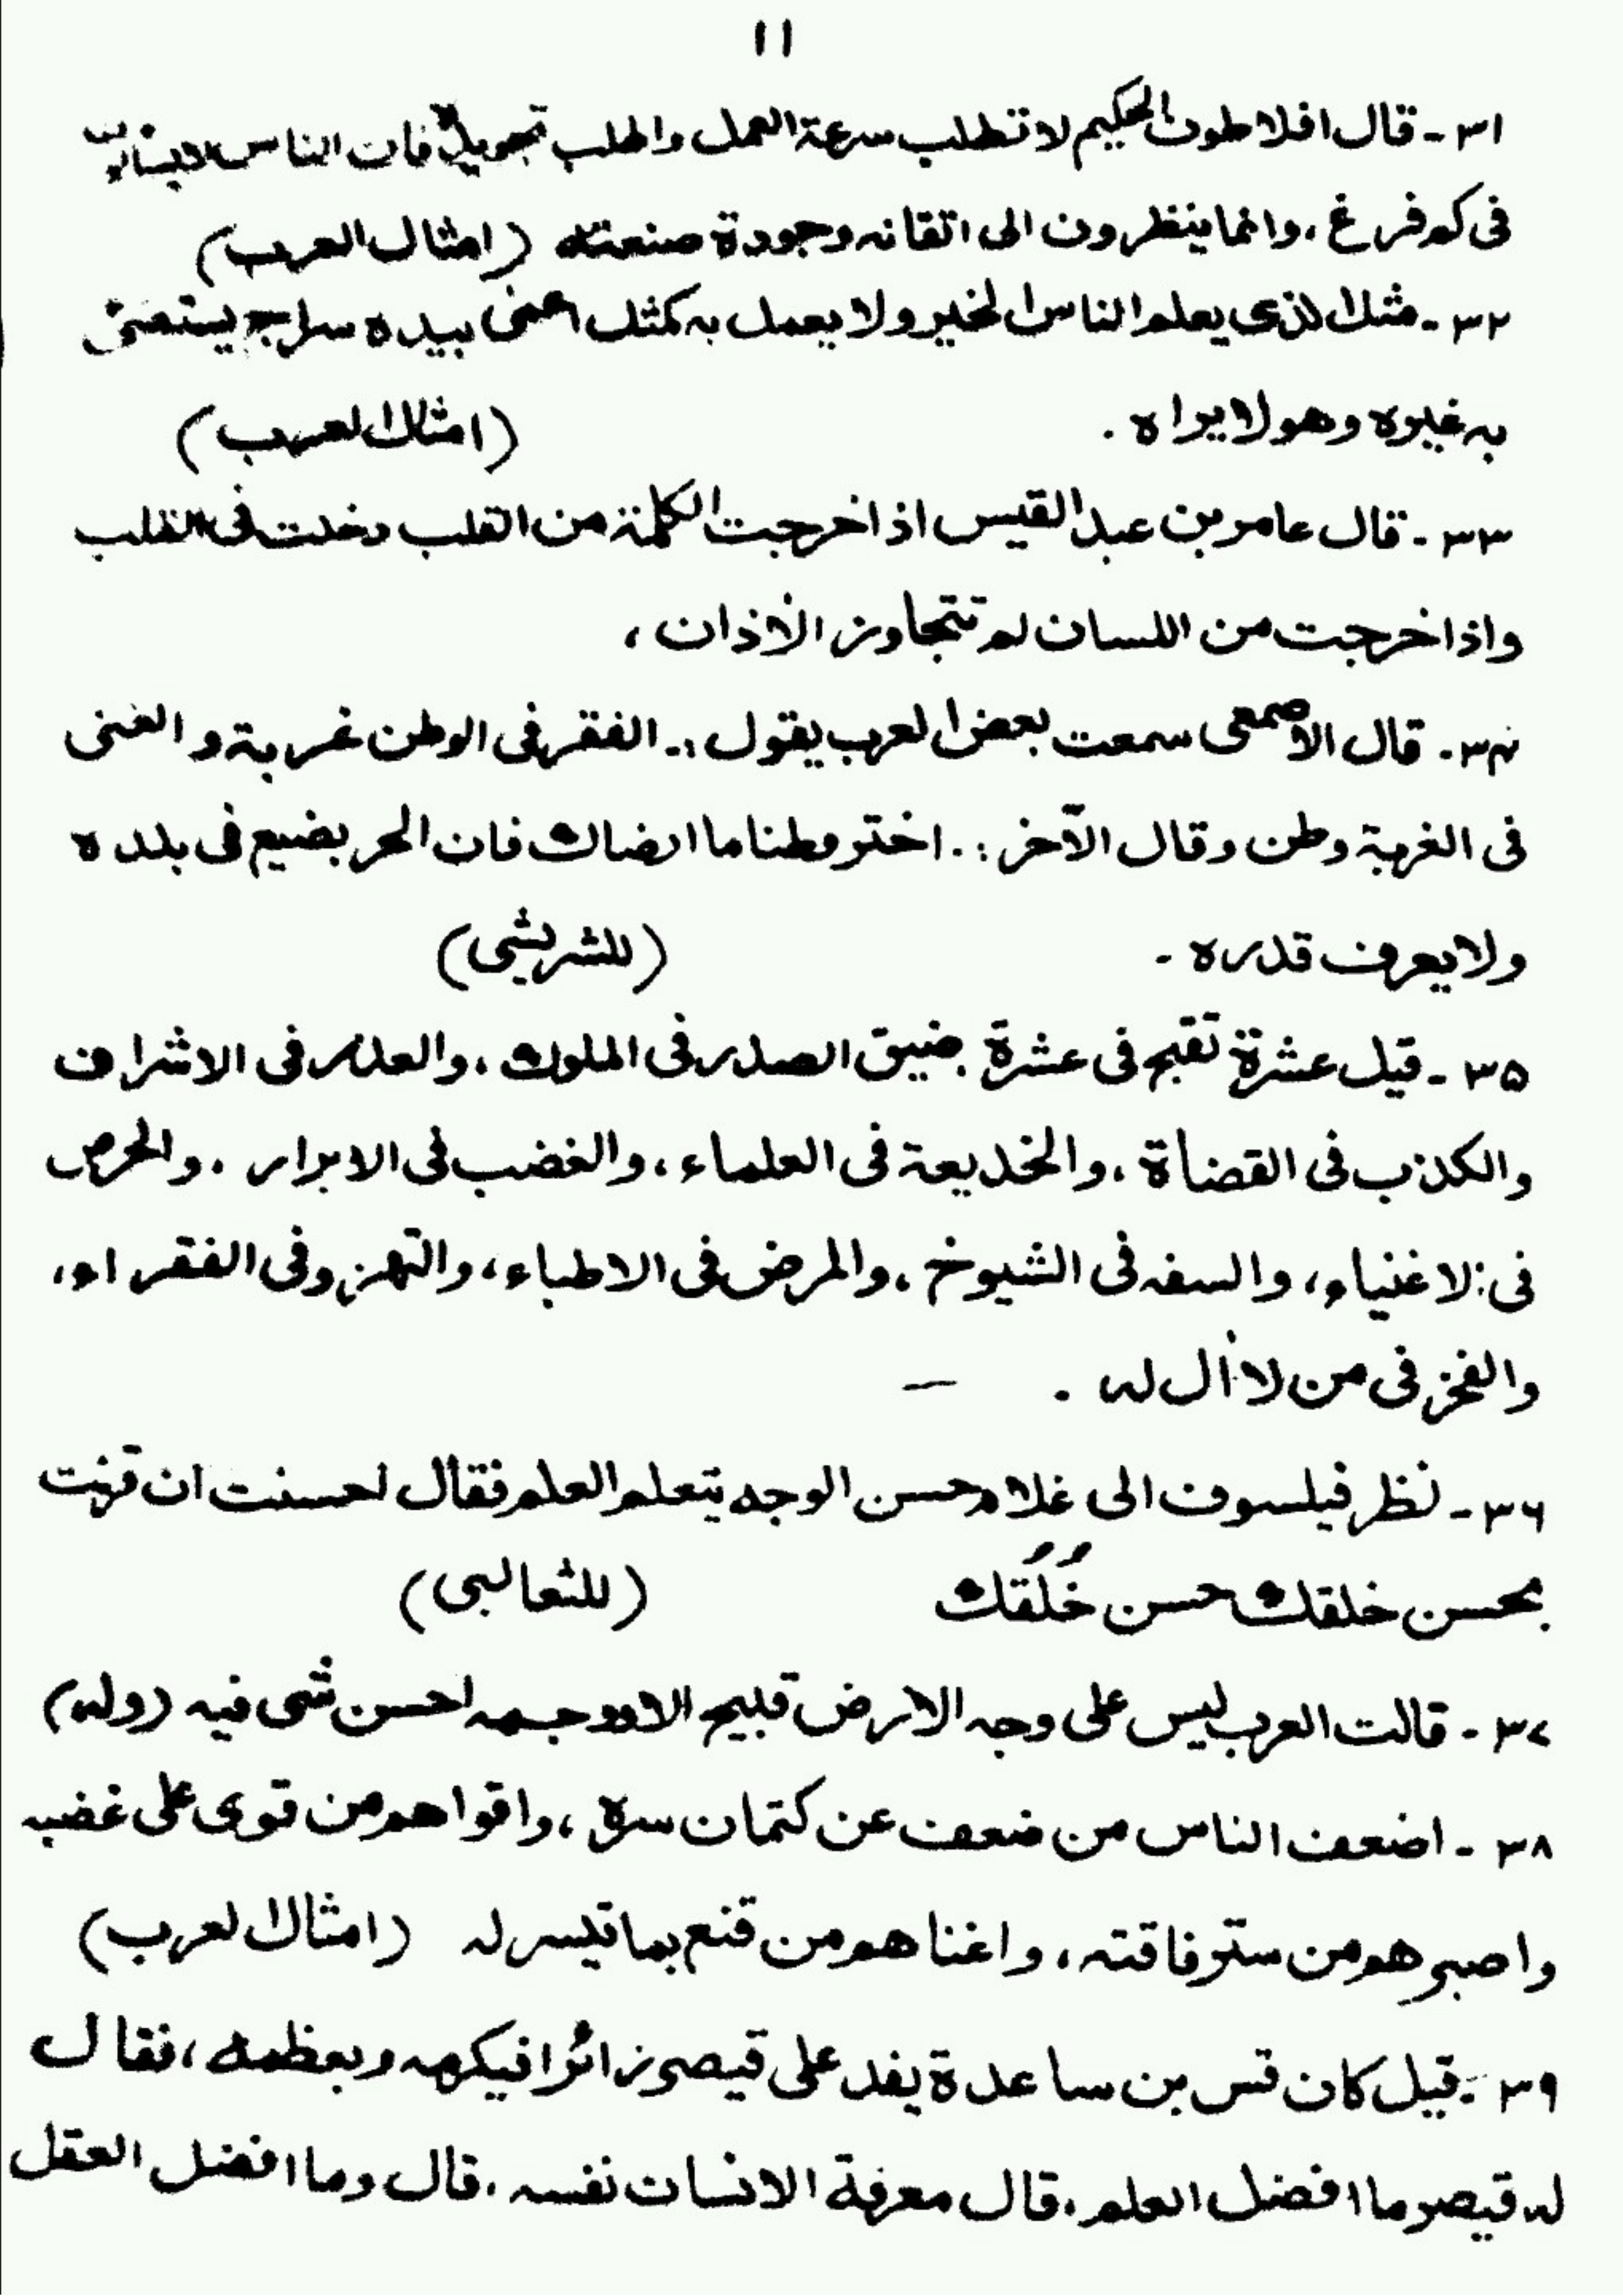 ١١
٣١ - قال افلاطون الحكيم لا تطلب سرعة العمل واطلب تجويده فان الناس لا
فى كم فرغ ، وانما ينظرون الى اتقانه وجودة صنعته (امثال العرب)
٣٢ - مثل الذى يعلم الناس الخير ولا يعمل به كمثل اعمى بيده سراج يستضئ
به غيره وهو لا يراه . (امثال العرب)
٣٣ - قال عامر بن عبد القيس اذا خرجت الكلمة من القلب دخلت فى القلب
واذا خرجت من اللسان لم تتجاوز الأذان ،
٣٤ - قال الاصمعى سمعت بعض العرب يقول :. الفقر فى الوطن غربة و الغنى
فى الغربة وطن وقال الآخر :. اختر وطنا ما ارضاك فان الحر يضيع فى بلده
ولا يعرف قدره - (للشريشى)
٣٥ - قيل عشرة تقبح فى عشرة ضيق الصدر فى الملوك ، والغدر فى الاشراف
والكذب فى القضاة ، والخديعة فى العلماء ، والغضب فى الابرار . والحرص
فى الاغنياء ، والسفه فى الشيوخ ، والمرض فى الاطباء ، والتهزو فى الفقراء ،
والفخر فى من لا أل له . —
٣٦ - نظر فيلسوف الى غلام حسن الوجه يتعلم العلم فقال احسنت ان قرنت
بحسن خلقك حسن خُلُقك (للثعالبى)
٣٧ - قالت العرب ليس على وجه الارض قبيح الا ووجهه احسن شى فيه (وله)
٣٨ - اضعف الناس من ضعف عن كتمان سره ، واقواهم من قوى على غضبه
واصبرهم من ستر فاقته ، واغناهم من قنع بما تيسر له (امثال العرب)
٣٩ - قيل كان قس بن ساعدة يفد على قيصر زائرا فيكرمه ويعظمه ، فقال
له قيصر ما افضل العلم ، قال معرفة الانسان نفسه ، قال وما افضل العقل